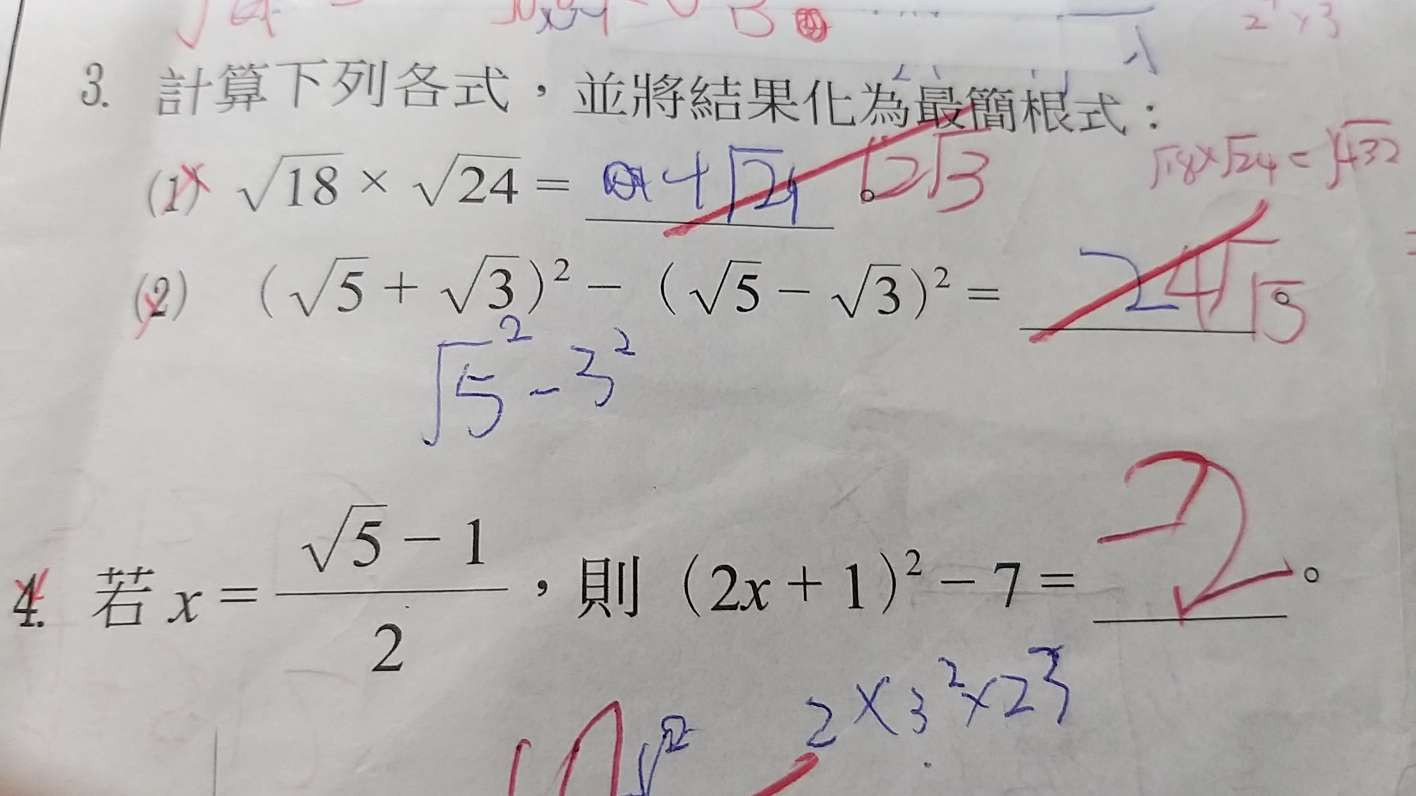 3. 計算下列各式，並將結果化為最簡根式：
√18×√24=√432
(1) √18 × √24 = 4√24 12√3
(2) (√5 + √3)² − (√5 − √3)² = 24 4√15
√5² − 3²
4. 若 x = (√5 − 1)/2，則 (2x + 1)² − 7 = −2。
2×3²×2³